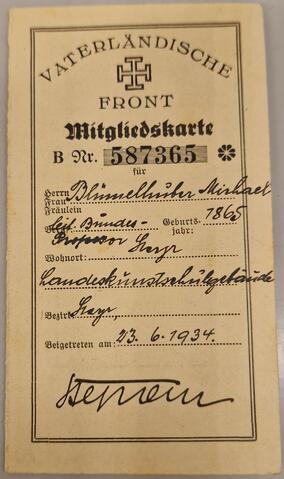 VATERLÄNDISCHE
FRONT
Mitgliedskarte
B Nr. 587365
für
Herrn
Frau Blümelhuber Michael
Fräulein
Bundes- Geburts- 1865
Professor Steyr jahr:
Wohnort:
Landeskunstschulgebäude
Bezirk Steyr,
Beigetreten am: 23.6.1934.